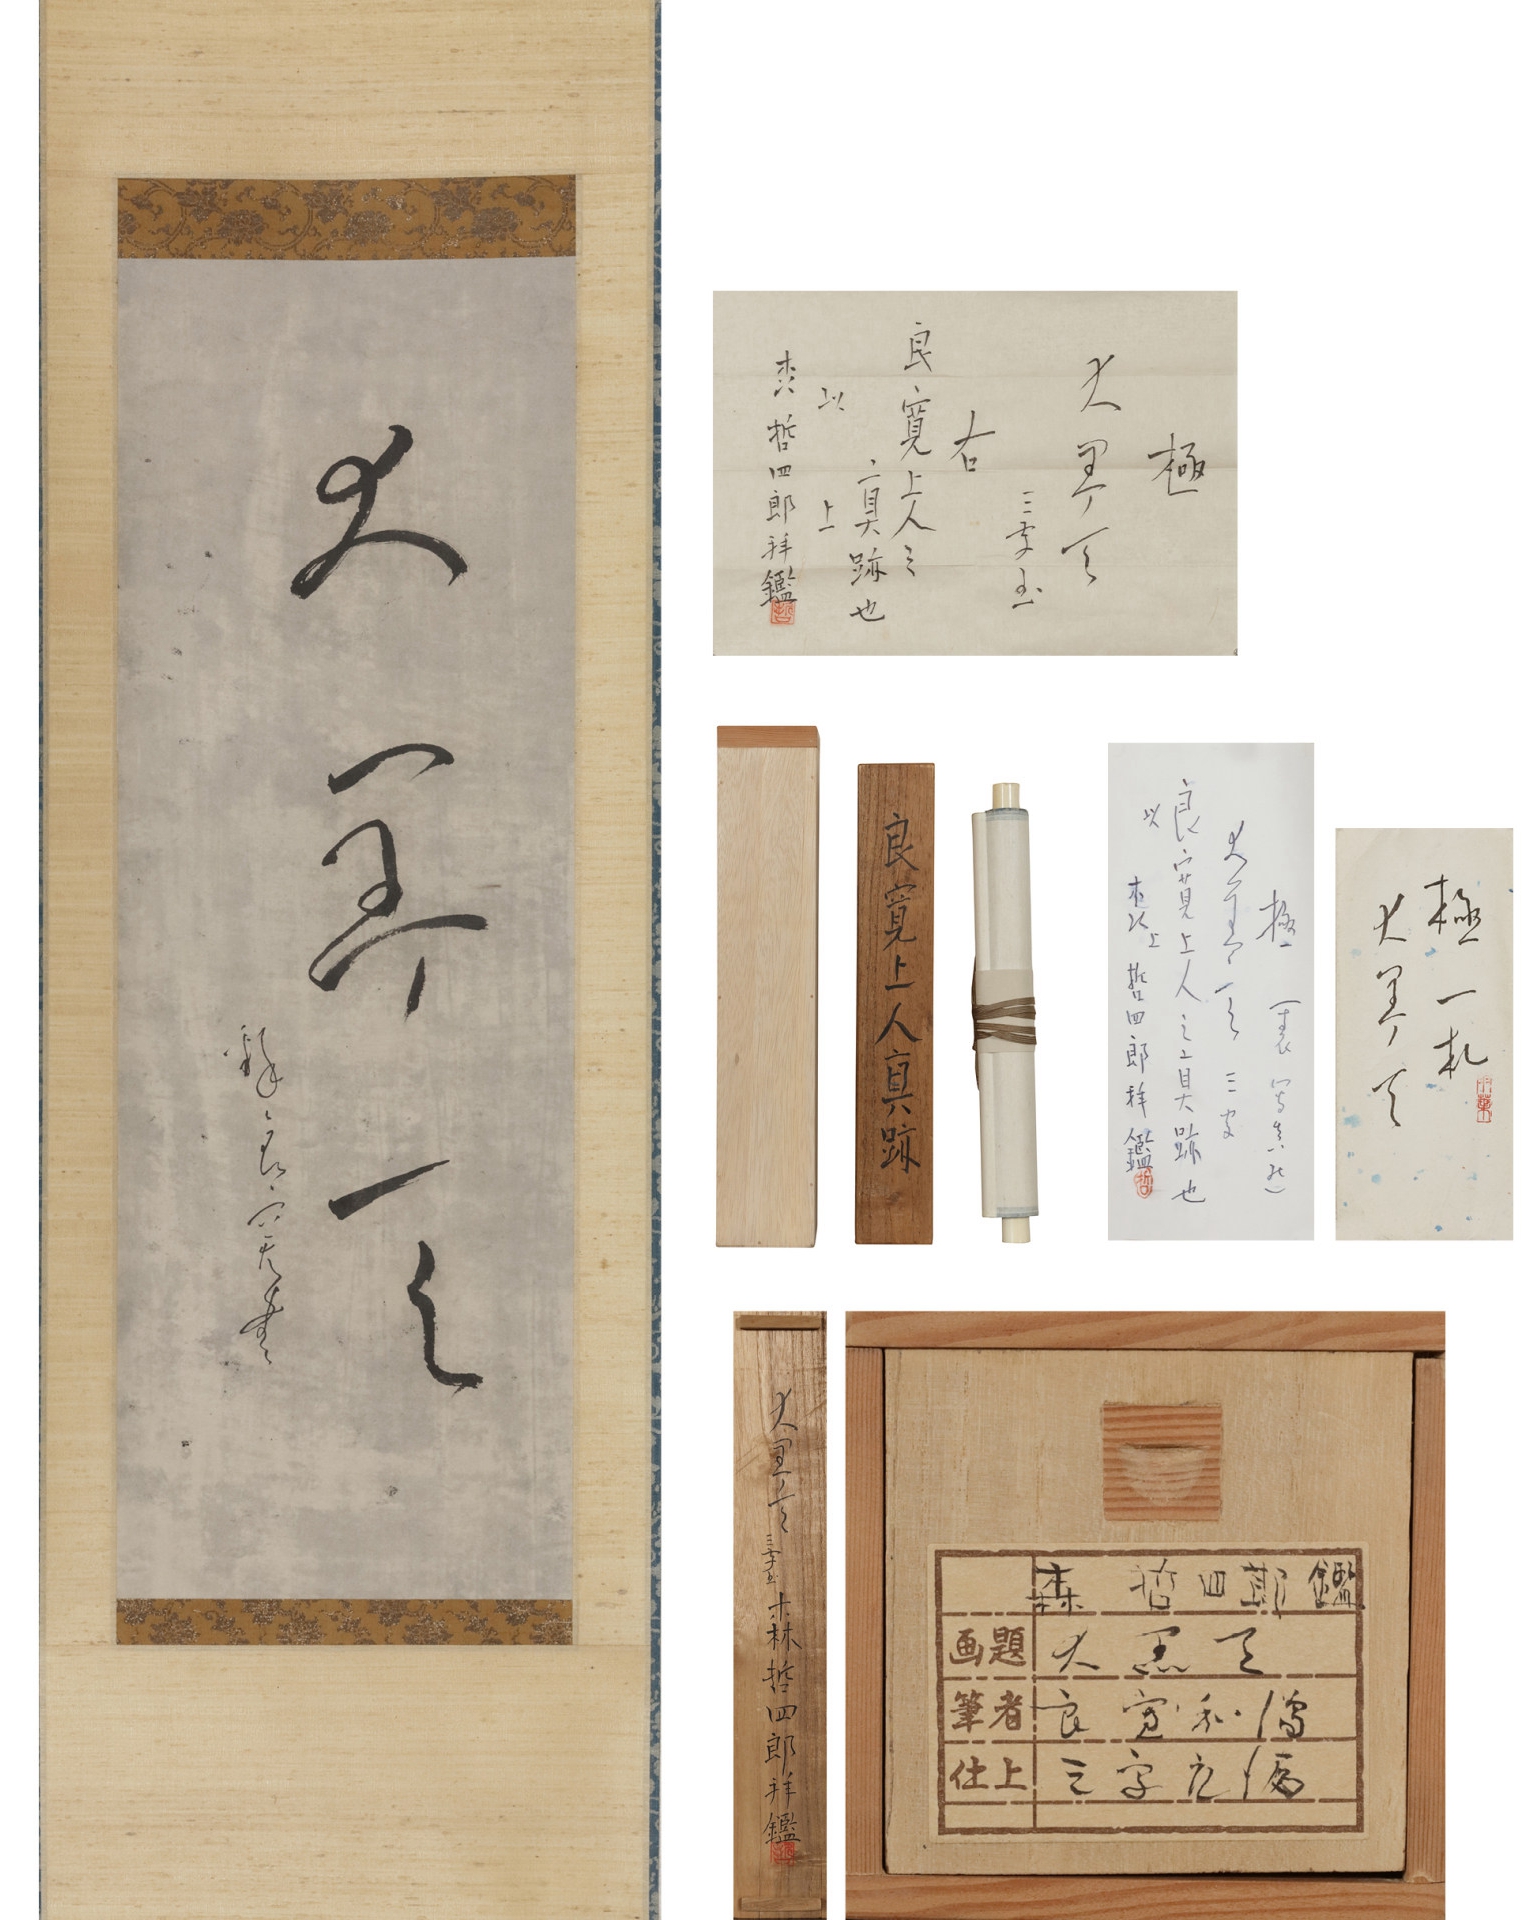 大黒天
釈良寛書
極
大黒天
三字
右
良寛上人之
真跡也
以上
森哲四郎拝鑑
良寛上人真跡
極
大黒天 三字
良寛上人之真跡也
以上
森哲四郎拝鑑
極一札
大黒天
大黒天 三字 森哲四郎拝鑑
森哲四郎鑑
画題 大黒天
筆者 良寛和尚
仕上 三字